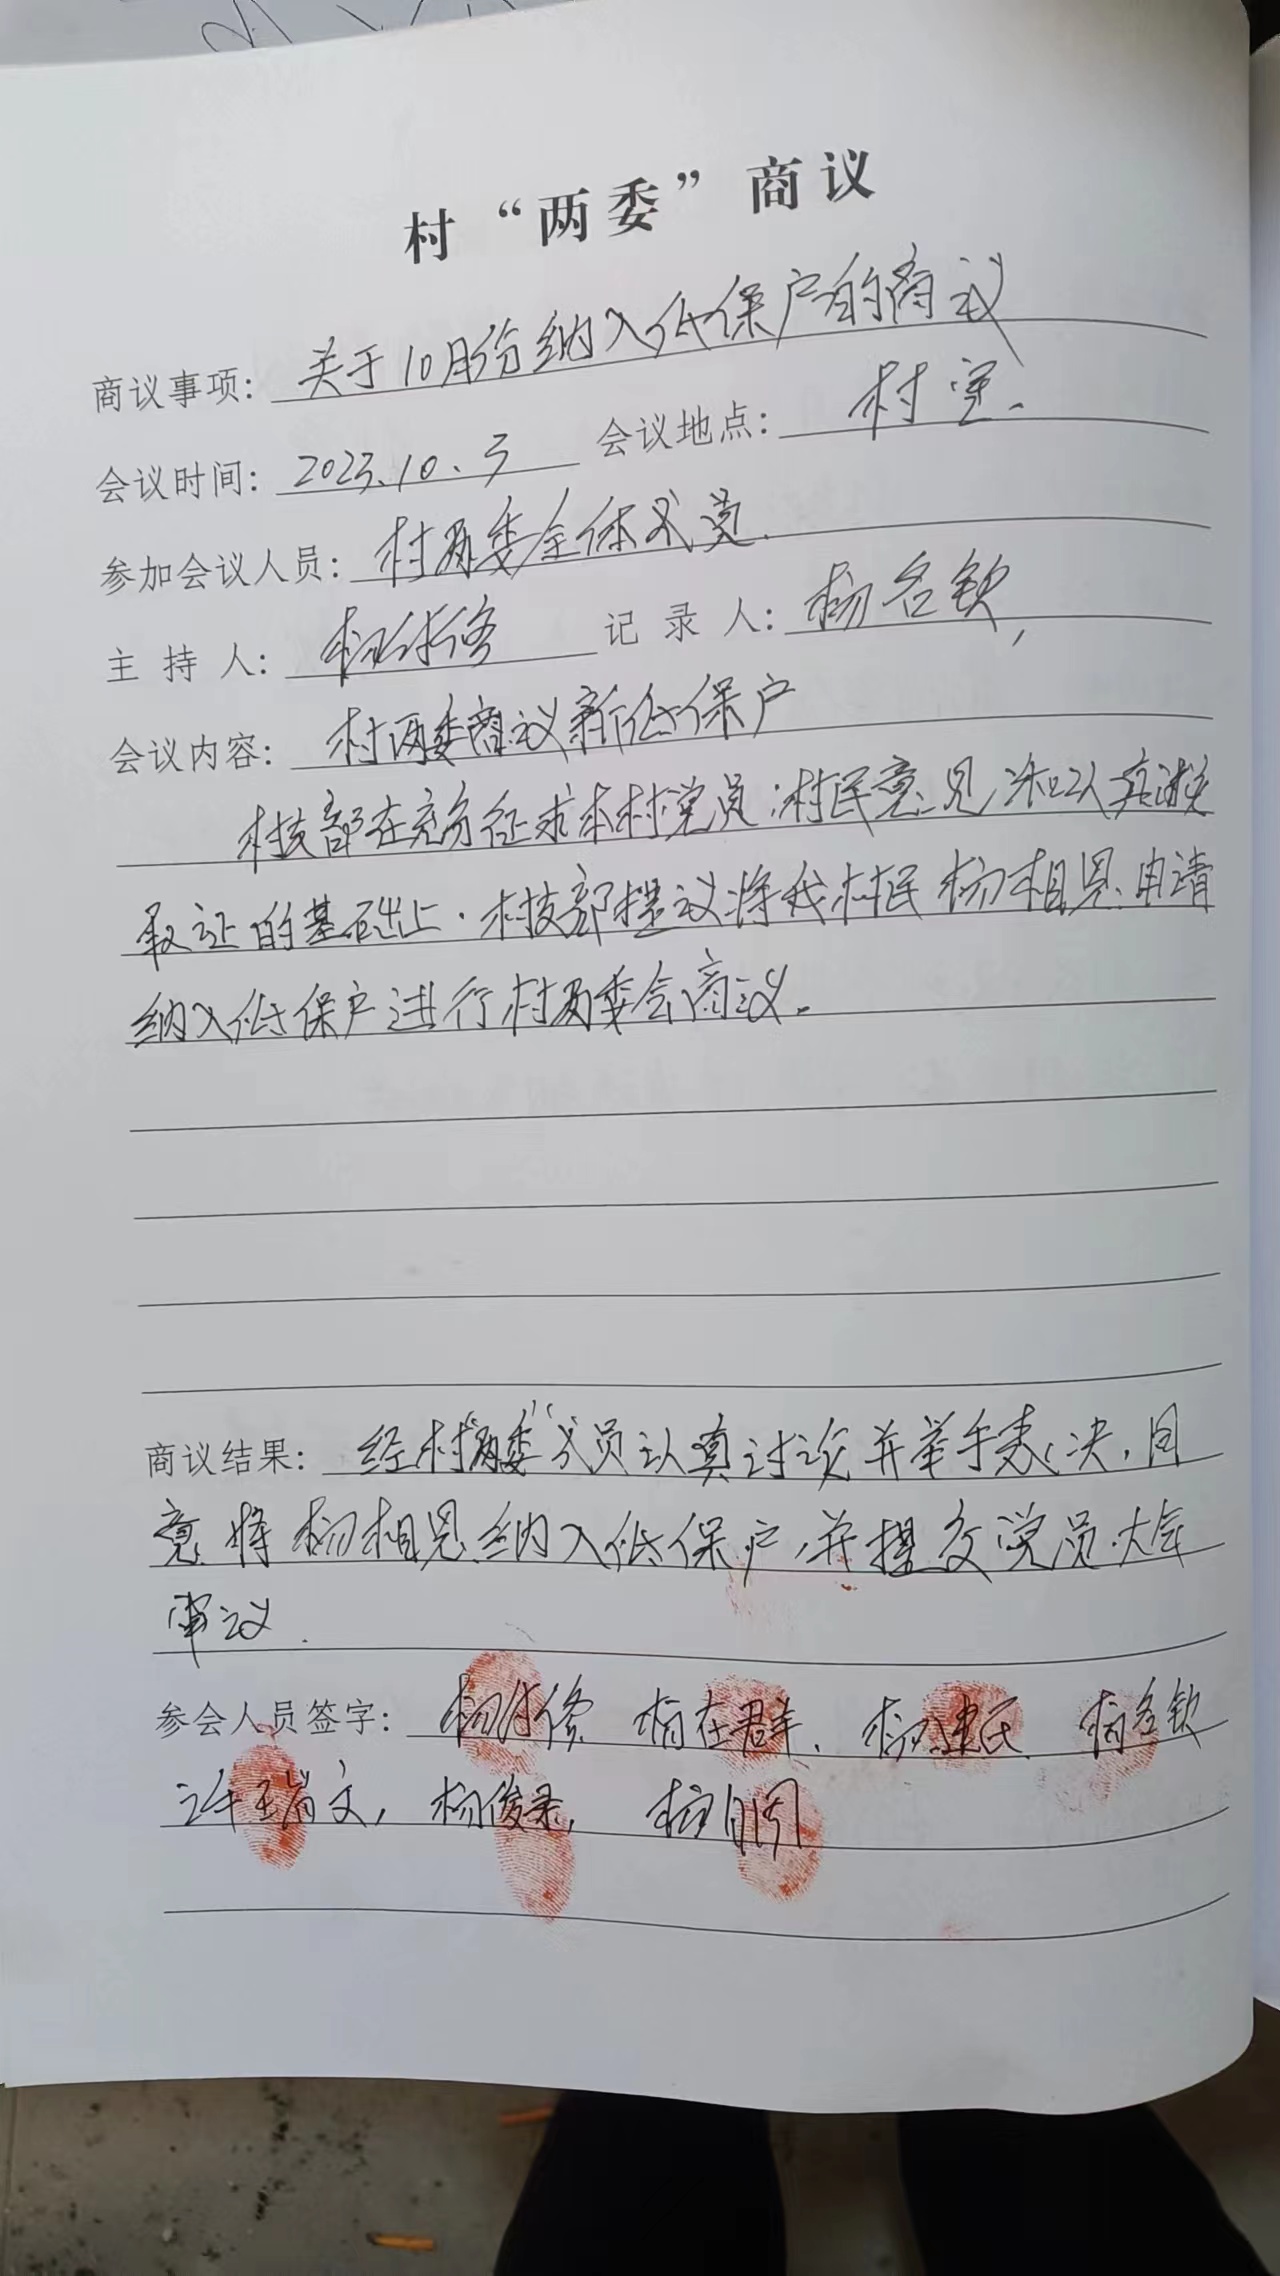 村“两委”商议
商议事项：关于10月份纳入低保户的商议
会议时间：2023.10.3 会议地点：村室.
参加会议人员：村两委全体成员.
主持人：杨 记录人：杨名钦,
会议内容：村两委商议新低保户
村支部在充分征求本村党员,村民意见和认真
取证的基础上.村支部提议将我村民杨相恩申请
纳入低保户进行村两委会商议.
商议结果：经村“两委”成员认真讨论并举手表决,同
意将杨相恩纳入低保户,并提交党员大会
审议.
参会人员签字：杨 杨在群. 杨建民 杨名钦
许瑞文, 杨俊